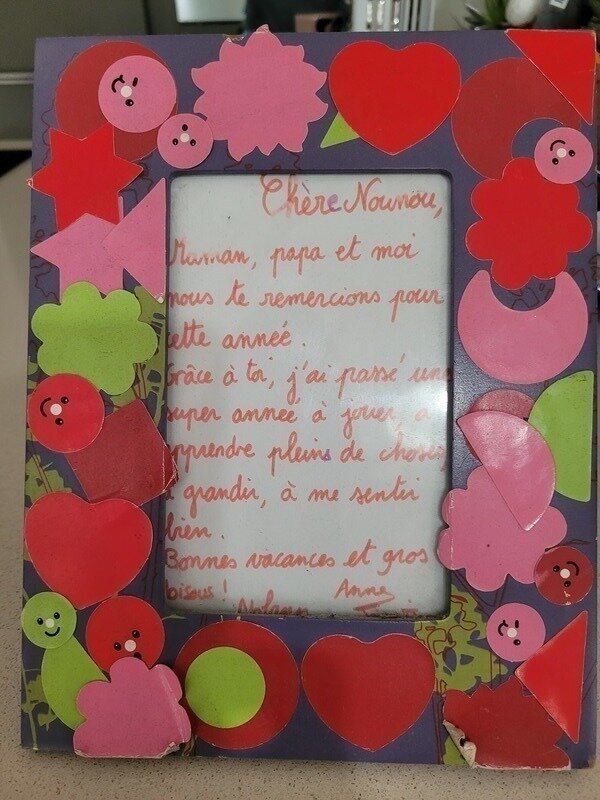 Chère Nounou,
Maman, papa et moi
nous te remercions pour
cette année.
Grâce à toi, j'ai passé une
super année à jouer, à
apprendre pleins de choses,
à grandir, à me sentir
bien.
Bonnes vacances et gros
bisous!
Anne